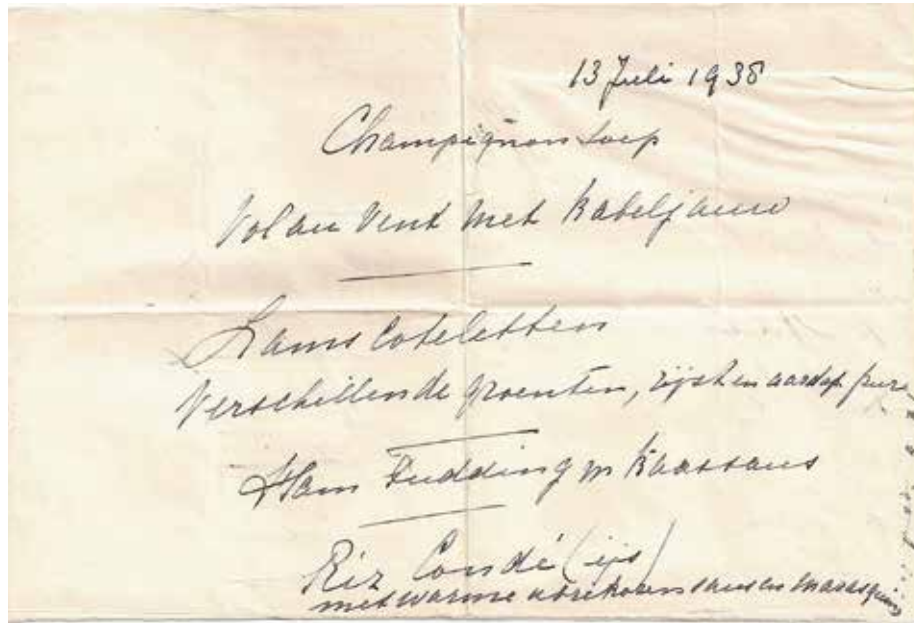 13 Juli 1938
Champignon soep
Vol au Vent met kabeljauw
Lams coteletten
Verschillende groenten, rijst en aardap pure
Ham Pudding m kaassaus
Riz Condé (ijs)
met warme abrikozen saus en marasquin